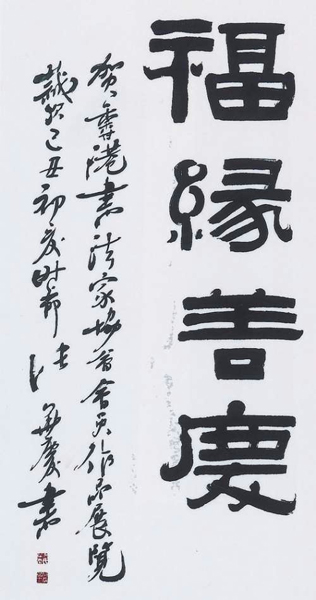 福緣善慶
賀香港書法家協會會員作品展覽
歲次己丑初夏时節 张華慶書